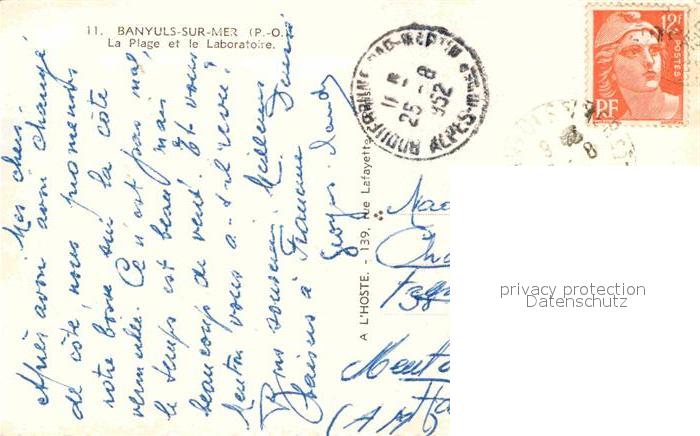 11. BANYULS-SUR-MER (P.-O.
La Plage et le Laboratoire.
Mes chers
Après avoir avoir changé
de côté, nous promenons
votre bonne sur la côte
vermeille. Ce n'est pas mal
le temps est beau mais
beaucoup de vent. Et vous
Menton vous a-t-il revu?
Bons souvenirs. Meilleurs
baisers à Francine
Georges
A L'HOSTE. - 139, rue Lafayette
Mad
Cha
Menton
(A M)
ROQUEBRUNE CAP-MARTIN
ALPES-MMES
25 - 8
1952
12F
POSTES
RF
8
privacy protection
Datenschutz